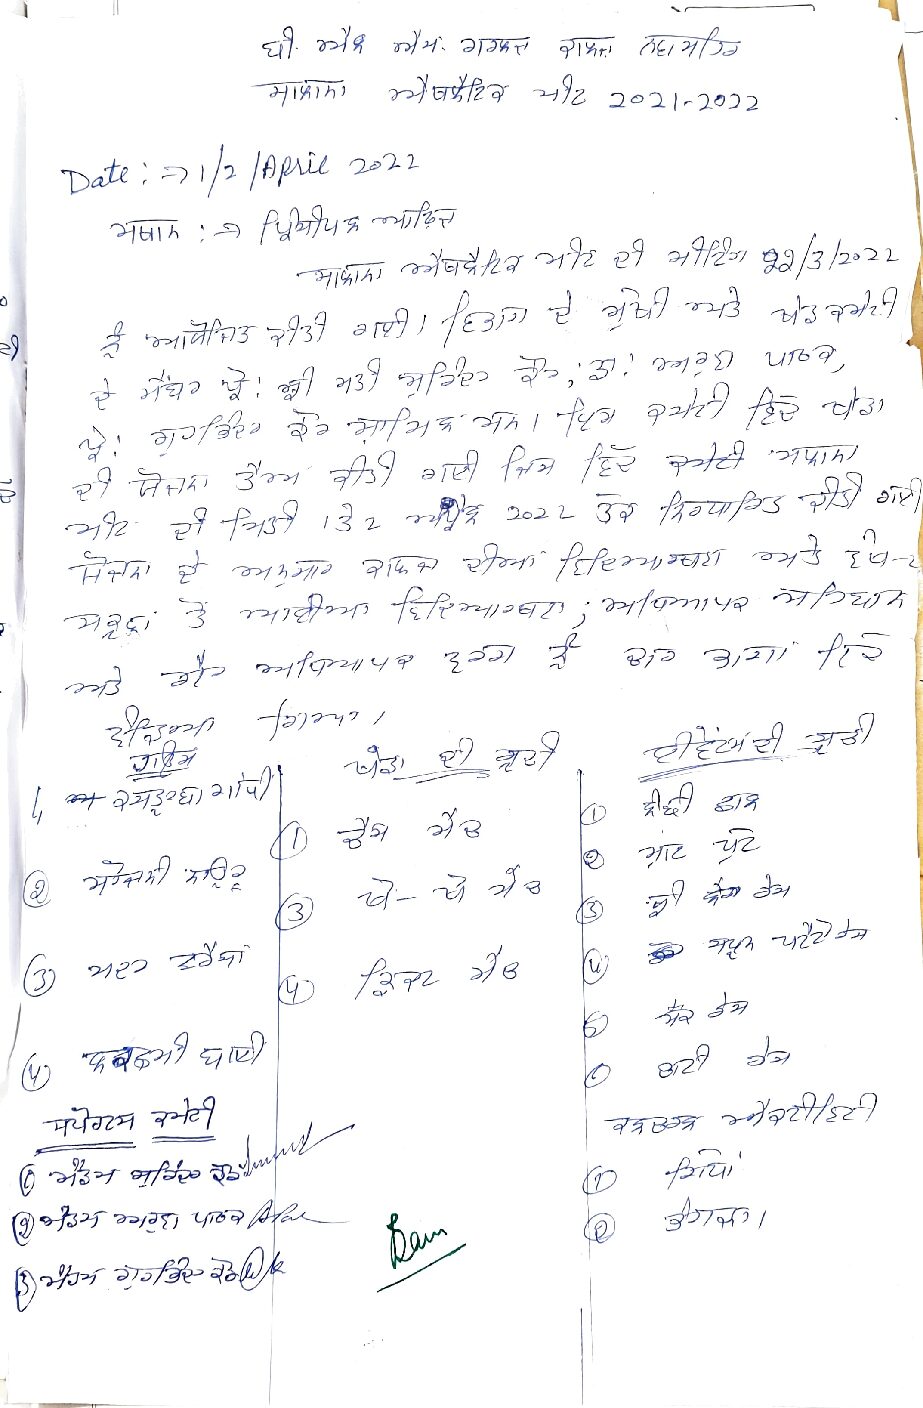 ਬੀ. ਐਲ ਐਮ. ਗਰਲਜ਼ ਕਾਲਜ ਨਵਾਂਸ਼ਹਿਰ
ਸਾਲਾਨਾ ਐਥਲੈਟਿਕ ਮੀਟ 2021-2022
Date: → 1/2 /April 2022
ਸਥਾਨ : → ਪ੍ਰਿੰਸੀਪਲ ਆਫ਼ਿਜ
ਸਾਲਾਨਾ ਐਥਲੈਟਿਕ ਮੀਟ ਦੀ ਮੀਟਿੰਗ 22/3/2022
ਨੂੰ ਆਯੋਜਿਤ ਕੀਤੀ ਗਈ। ਵਿਭਾਗ ਦੇ ਮੁੱਖੀ ਅਤੇ ਖੇਡ ਕਮੇਟੀ
ਦੇ ਮੈਂਬਰ ਪ੍ਰੋ: ਸ੍ਰੀ ਮਤੀ ਸੁਰਿੰਦਰ ਕੌਰ, ਡਾ: ਅਰੁਣਾ ਪਾਠਕ,
ਪ੍ਰੋ: ਗੁਰਵਿੰਦਰ ਕੌਰ ਸ਼ਾਮਿਲ ਸਨ। ਇਸ ਕਮੇਟੀ ਵਿੱਚ ਖੇਡਾਂ
ਦੀ ਯੋਜਨਾ ਤੈਅ ਕੀਤੀ ਗਈ ਜਿਸ ਵਿੱਚ ਕਮੇਟੀ ਸਲਾਨਾ
ਮੀਟ ਦੀ ਮਿਤੀ 1 ਤੇ 2 ਅਪ੍ਰੈਲ 2022 ਤੱਕ ਨਿਰਧਾਰਿਤ ਕੀਤੀ ਗਈ
ਯੋਜਨਾ ਦੇ ਅਨੁਸਾਰ ਕਾਲਜ ਦੀਆਂ ਵਿਦਿਆਰਥਣਾਂ ਅਤੇ ਵੱਖ-2
ਸਕੂਲਾਂ ਤੋਂ ਆਈਆਂ ਵਿਦਿਆਰਥਣਾਂ, ਅਧਿਆਪਕ ਸਹਿਬਾਨ
ਅਤੇ ਗੈਰ ਅਧਿਆਪਕ ਵਰਗ ਨੂੰ ਚਾਰ ਭਾਗਾਂ ਵਿੱਚ
ਵੰਡਿਆ ਗਿਆ।
ਹਾਊਸ
1, ਕਸਤੂਰਬਾ ਗਾਂਧੀ
② ਸਰੋਜਨੀ ਨਾਇਡੂ
③ ਮਦਰ ਟਰੇਸਾਂ
④ ਲਕਛਮੀ ਬਾਈ
ਖੇਡਾਂ ਦੀ ਸੂਚੀ
① ਚੈਸ ਮੈਚ
③ ਖੋ-ਖੋ ਮੈਚ
④ ਕ੍ਰਿਕਟ ਮੈਚ
ਈਵੈਂਟਸ ਦੀ ਸੂਚੀ
① ਲੰਬੀ ਛਾਲ
② ਸ਼ਾਟ ਪੁੱਟ
③ ਥ੍ਰੀ ਲੈੱਗ ਰੇਸ
④ ਸਪੂਨ ਪਟੈਟੋ ਰੇਸ
5 ਸੈਕ ਰੇਸ
6 ਚਾਟੀ ਰੇਸ
ਕਲਚਰਲ ਐਕਟੀਵਿਟੀ
① ਗਿੱਧਾ
② ਭੰਗੜਾ।
ਸਪੋਰਟਸ ਕਮੇਟੀ
① ਮੈਡਮ ਸੁਰਿੰਦਰ ਕੌਰ
② ਮੈਡਮ ਅਰੁਣਾ ਪਾਠਕ
③ ਮੈਡਮ ਗੁਰਵਿੰਦਰ ਕੌਰ